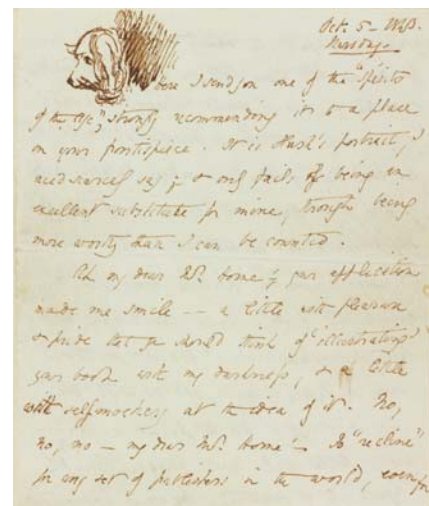 Oct. 5 –
Thursday.
here I send you one of the "Spirits
of the Age", strongly recommending it to a place
in your frontispiece. It is Flush's portrait, I
need scarcely say; & only fails of being an
excellent substitute for mine, through being
more worthy than I can be counted.
Ah my dear Mr. Horne! your application
made me smile -- a little with pleasure
& pride that you should think of 'illustrating'
your book with my darkness, & a little
with selfmockery at the idea of it. No,
no, no – my dear Mr. Horne! – To "recline"
for any set of publishers in the world, even for